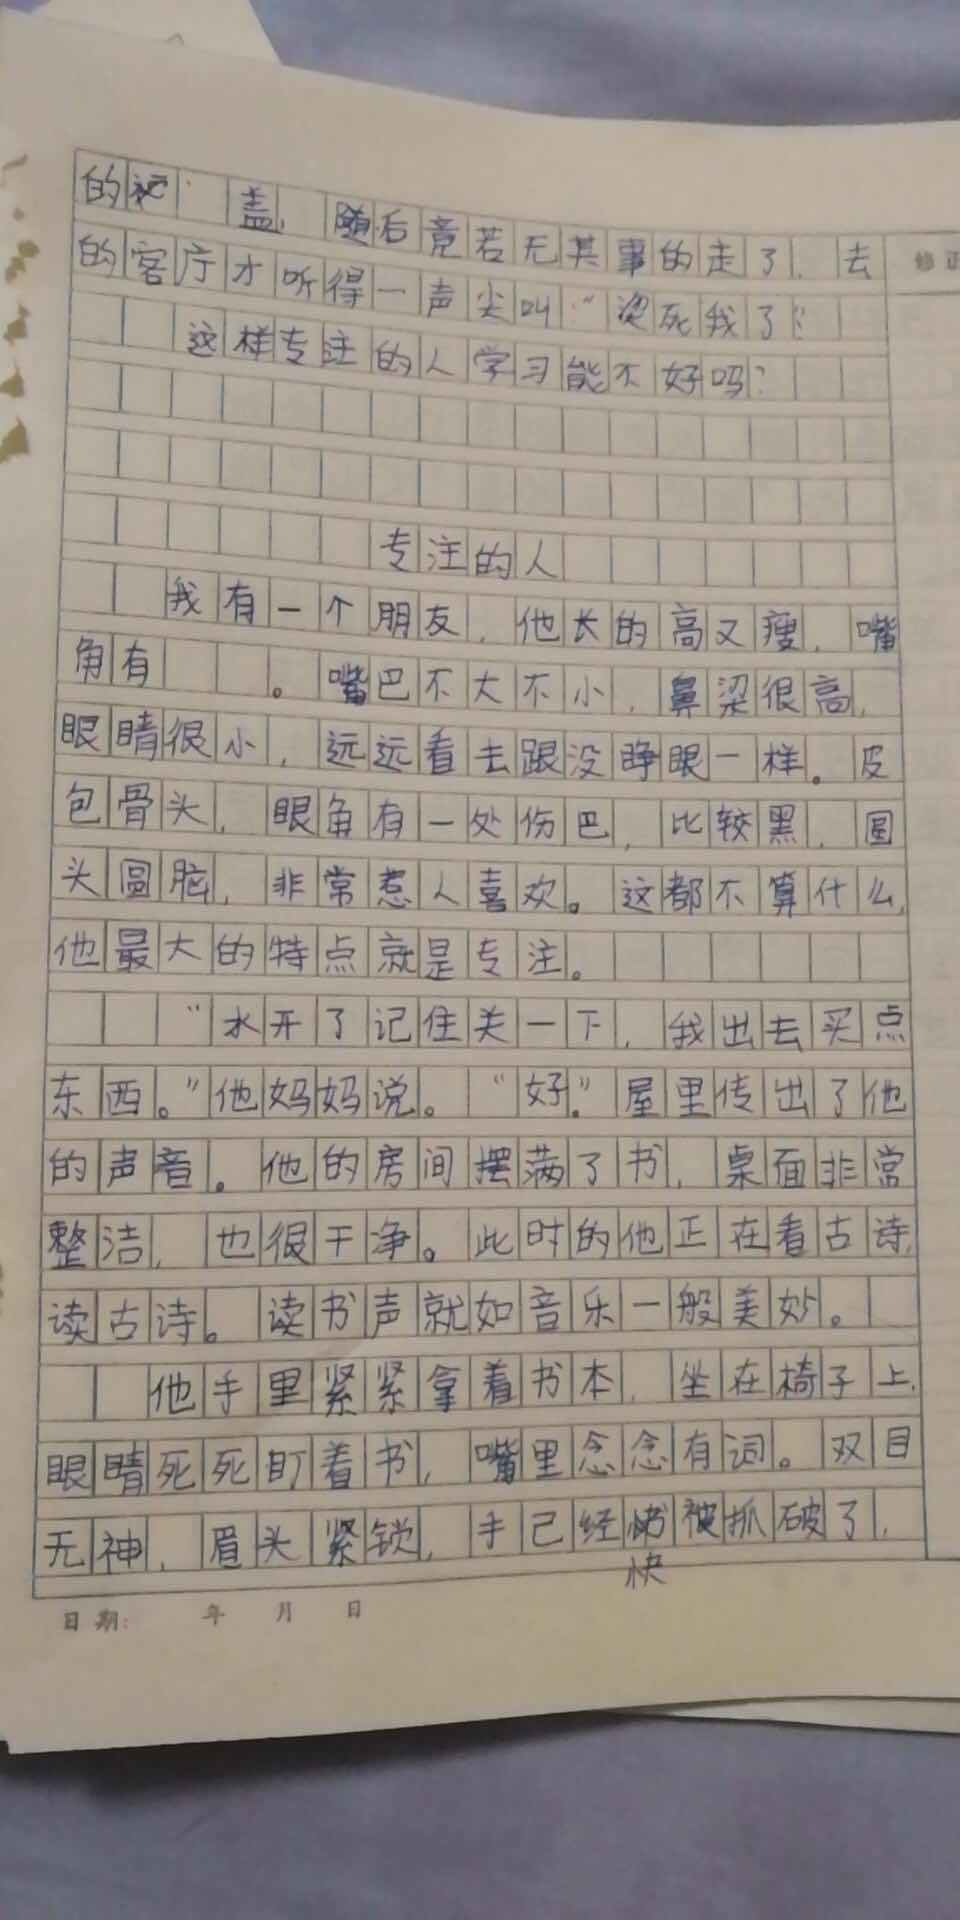 的 盖，随后竟若无其事的走了，去
的客厅才听得一声尖叫：“烫死我了！”
这样专注的人学习能不好吗？
专注的人
我有一个朋友，他长的高又瘦，嘴
角有 。嘴巴不大不小，鼻梁很高，
眼睛很小，远远看去跟没睁眼一样。皮
包骨头，眼角有一处伤巴，比较黑，圆
头圆脑，非常惹人喜欢。这都不算什么，
他最大的特点就是专注。
“水开了记住关一下，我出去买点
东西。”他妈妈说。“好。”屋里传出了他
的声音。他的房间摆满了书，桌面非常
整洁，也很干净。此时的他正在看古诗，
读古诗。读书声就如音乐一般美妙。
他手里紧紧拿着书本，坐在椅子上，
眼睛死死盯着书，嘴里念念有词。双目
无神，眉头紧锁，手已经快被抓破了，
日期： 年 月 日
修正